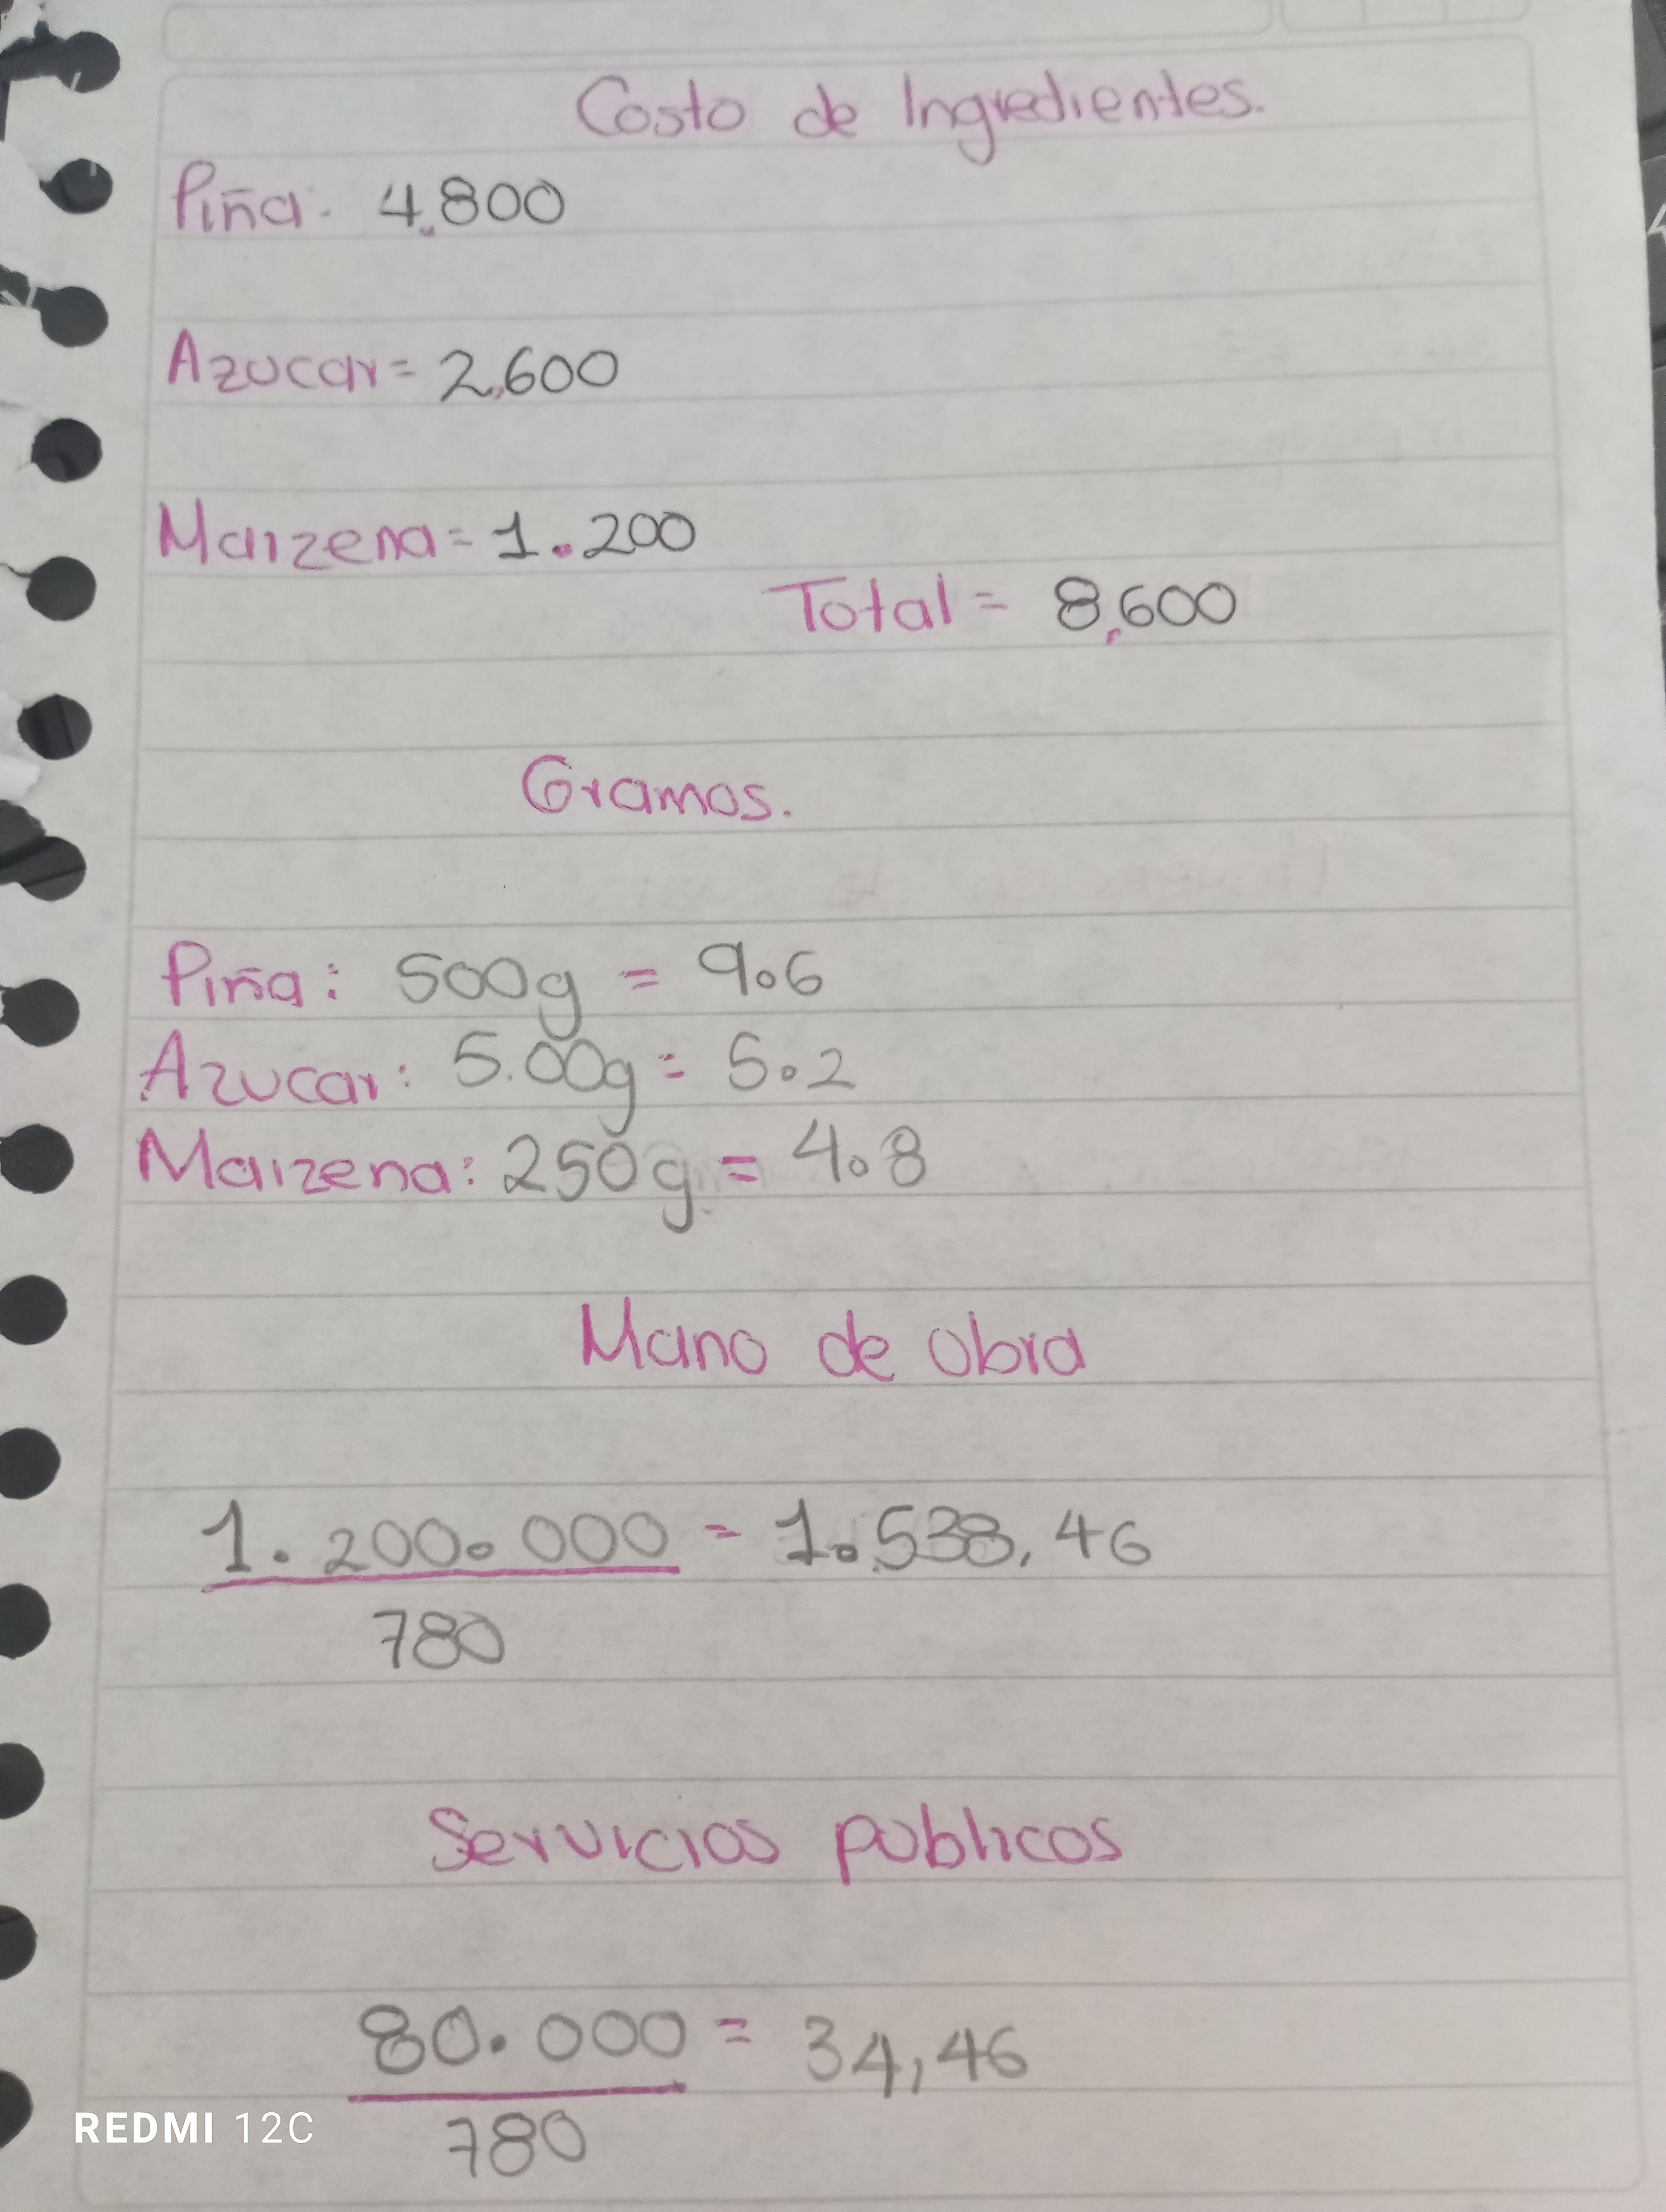 Costo de Ingredientes.
Piña. 4.800
Azucar = 2,600
Maizena = 1.200
Total = 8,600
Gramos.
Piña: 500g = 9.6
Azucar: 5.00g = 5.2
Maizena: 250g = 4.8
Mano de obra
1. 200.000 = 1.538,46
780
Servicios publicos
80.000 = 34,46
780
REDMI 12C